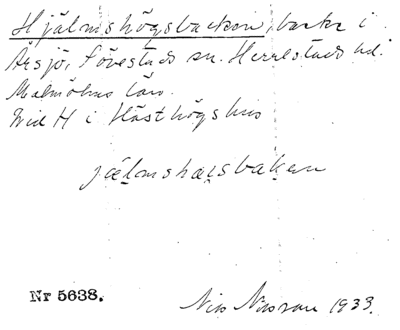 Hjälmshögsbacken, backe i
Årsjö, Sövestads sn. Herrestads hd.
Malmöhus län.
Wid H i Hästhögshus
jälmshøisbakan
Nr 5638.
Nils Nilsson 1933.